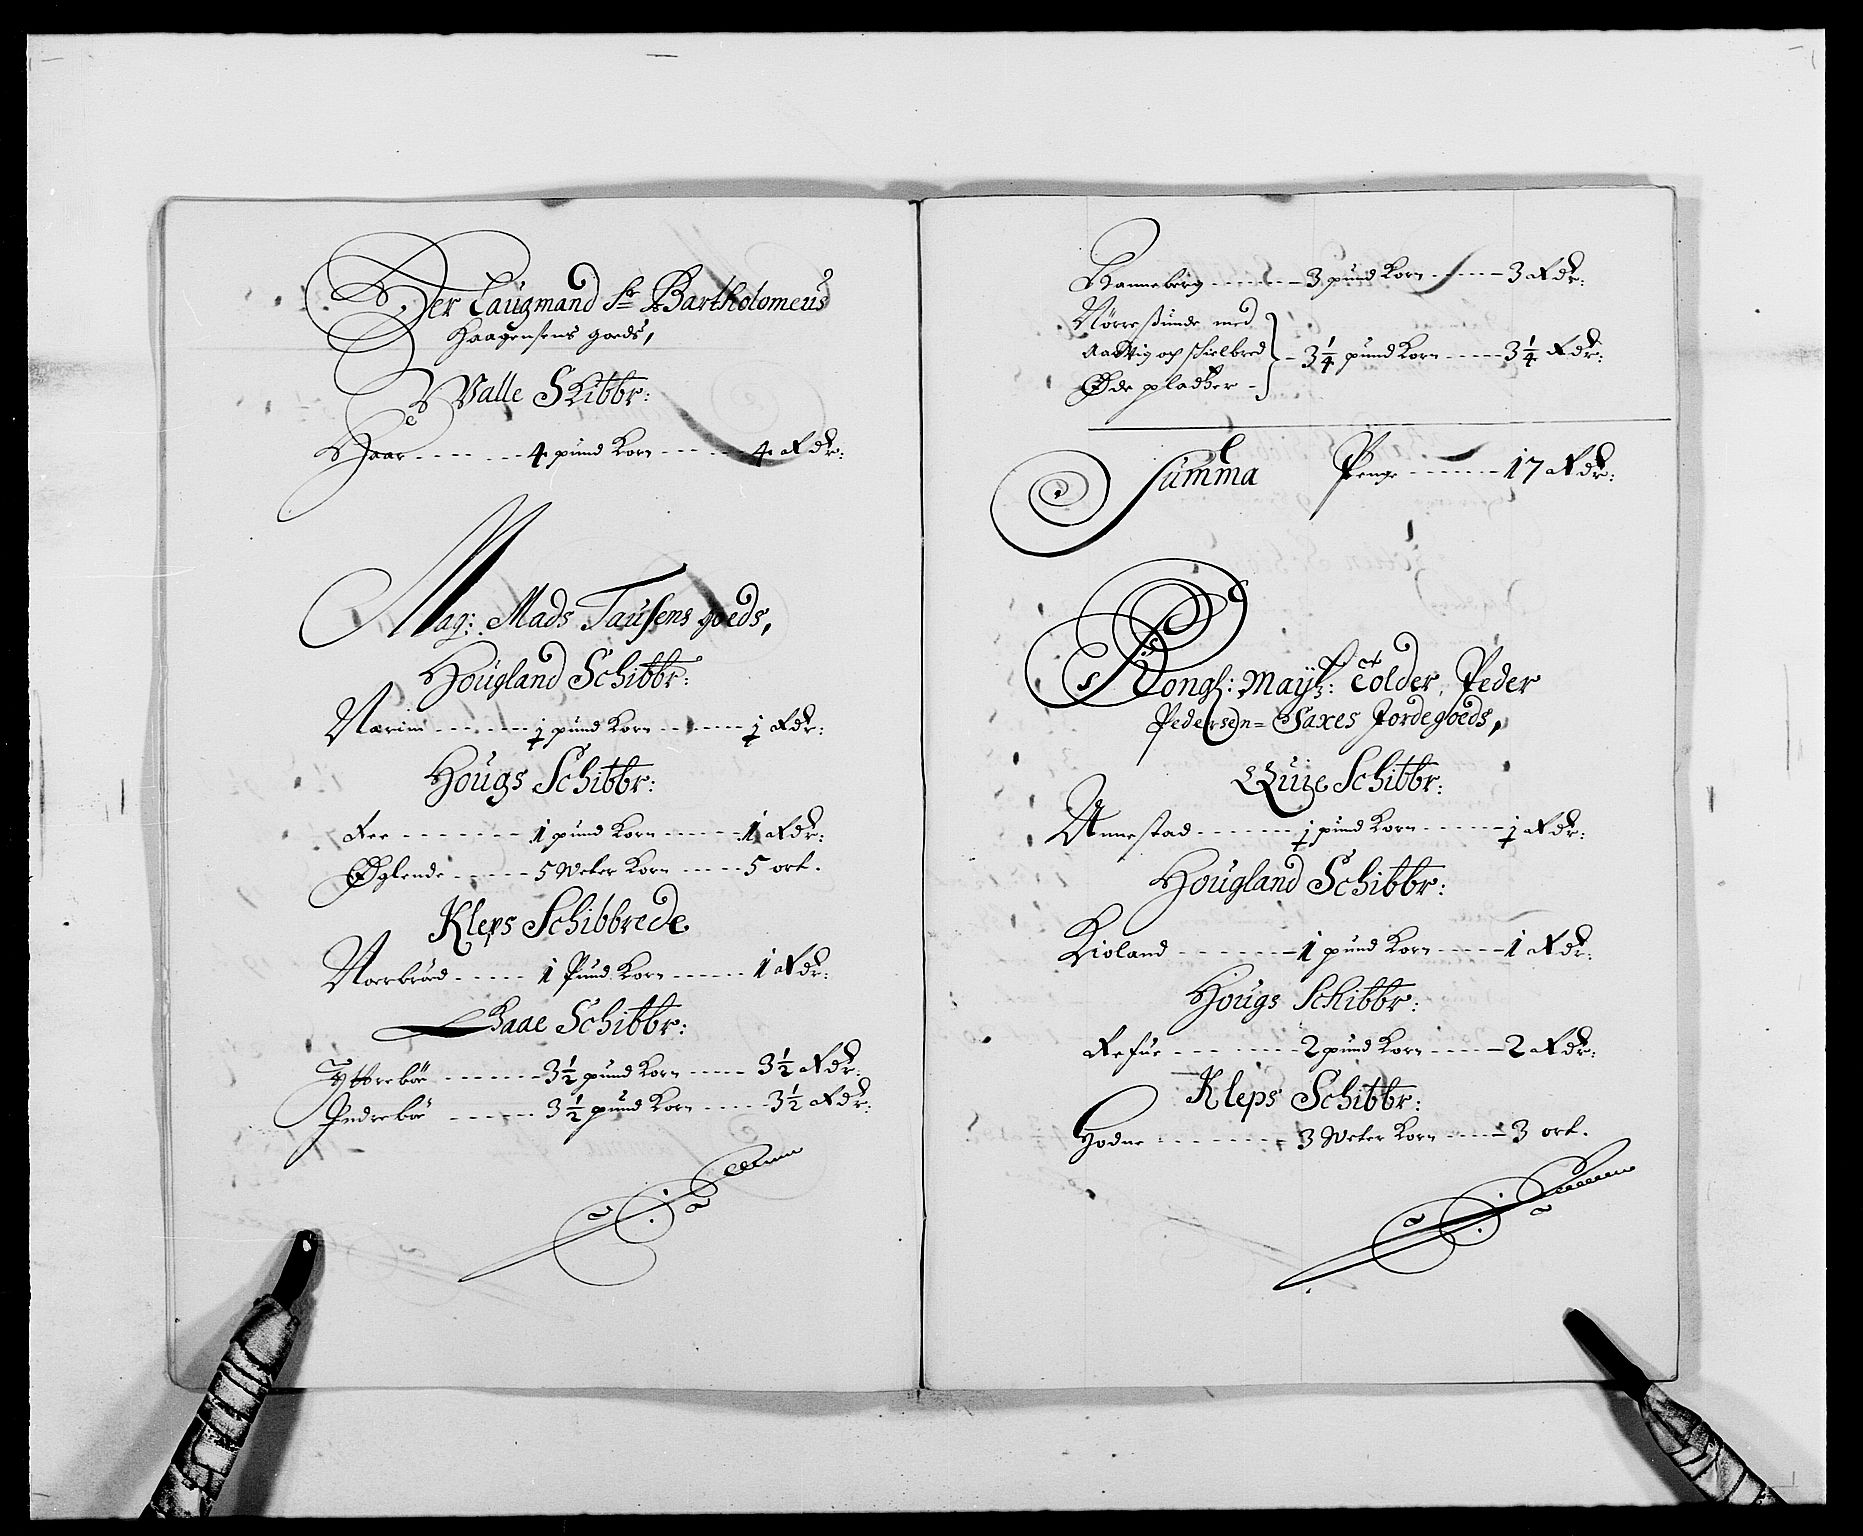 Her Laugmand Sr Bartholomeus
Haagensens goeds,
Walle Skibbr:
Haar - - - - - - 4 pund Korn - - - - - 4 Rdr:
Mag: Mads Tausens goeds,
Hougland Schibbr:
Nærim - - - - - - ½ pund Korn - - - - - ½ Rdr:
Hougs Schibbr:
Ree - - - - - - - 1 pund Korn - - - - - 1 Rdr:
Øglende - - - - - 5 Weter Korn - - - - - 5 ort.
Kleps Schibbrede
Norbrød - - - - - 1 Pund Korn - - - - - 1 Rdr:
Baae Schibbr:
Yttrebøe - - - - - - 3½ pund Korn - - - - 3½ Rdr:
Indrebøe - - - - - 3½ pund Korn - - - - 3½ Rdr:
Banneberg - - - - - - 3 pund Korn - - - - - 3 Rdr:
Nørresunde med
Aadvig och Skielbred - 3¼ pund Korn - - - - - 3¼ Rdr:
Øde pladtzer -
Summa Penge - - - - - - 17 Rdr:
Kongl: Mayts: Tolder Peder
Pedersen = Saxes Jordegoeds,
Quije Schibbr:
Unnestad - - - - - - ½ pund Korn - - - - - ½ Rdr:
Hougland Schibbr:
Kioland - - - - - - - 1 pund Korn - - - - - 1 Rdr:
Hougs Schibbr:
Refue - - - - - - - 2 pund Korn - - - - - 2 Rdr:
Kleps Schibbr:
Hodne - - - - - - - - 3 Weter Korn - - - - 3 ort.